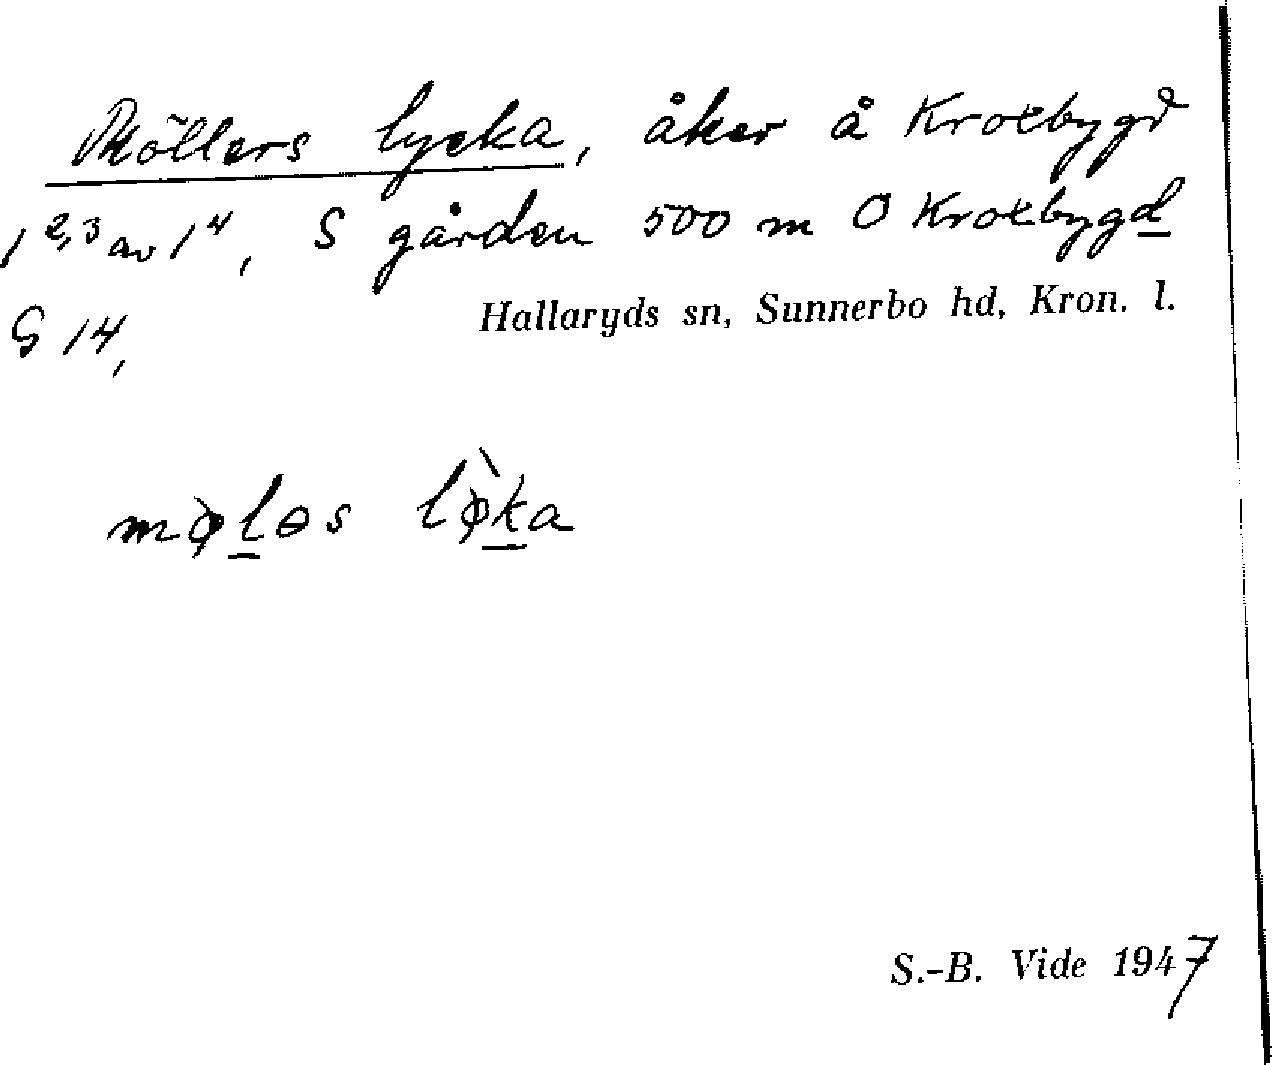 Möllers lycka, åker å Kroxbygd
1 2,3 av 1 4, S gården 500 m O Kroxbygd
G 14,
Hallaryds sn, Sunnerbo hd, Kron. l.
S.-B. Vide 1947